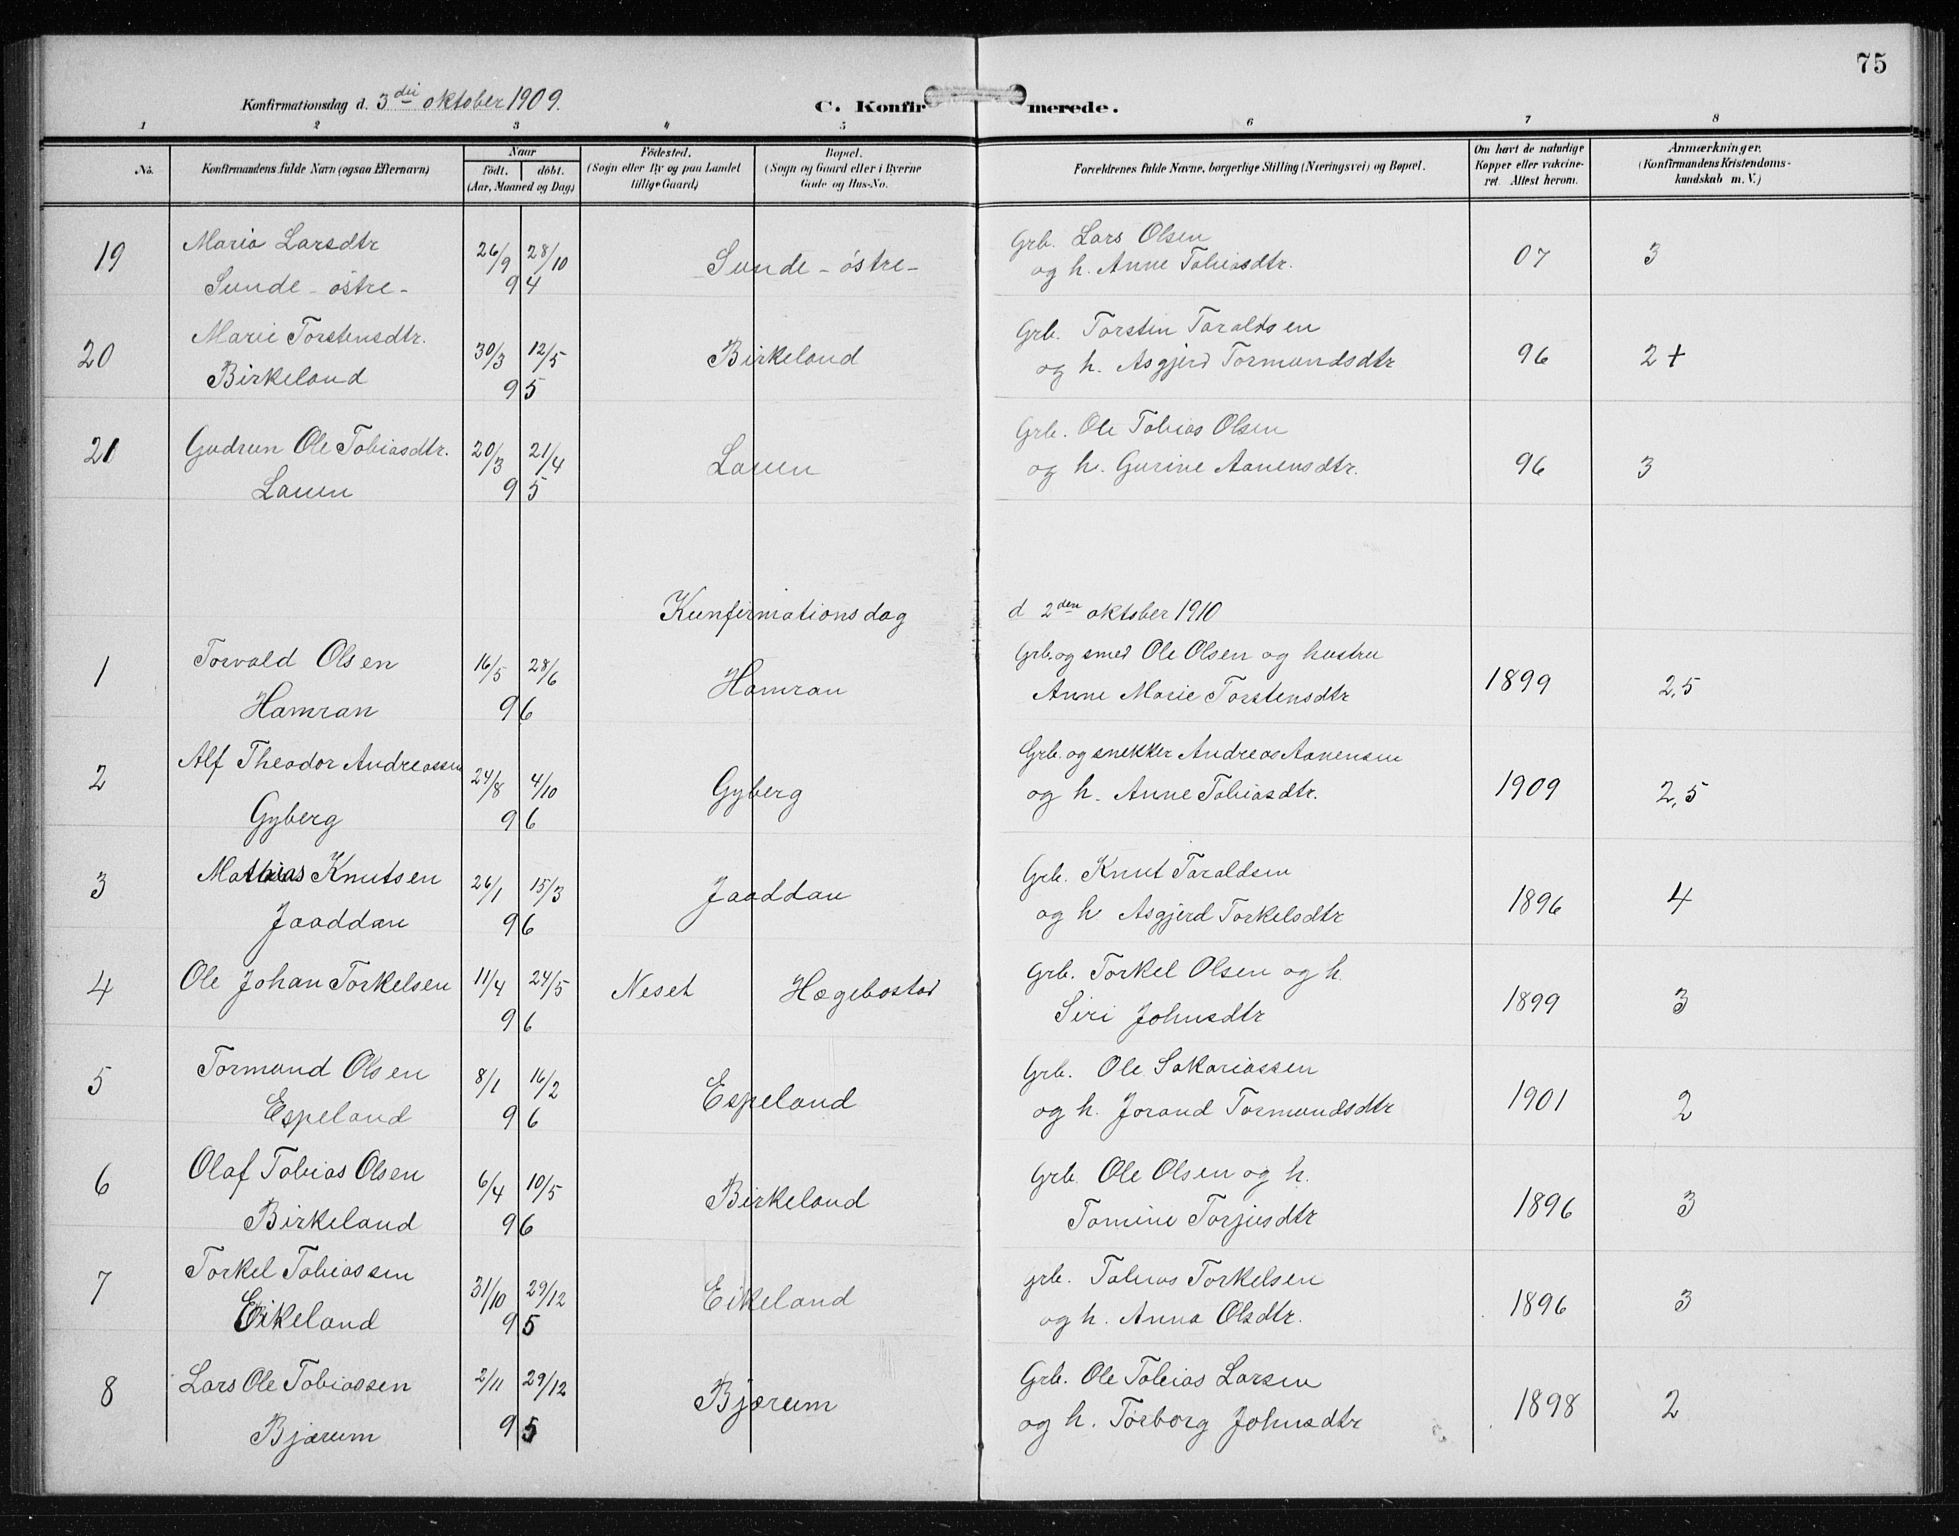 75
Konfirmationsdag d. 3die oktober 1909.
C. Konfirmerede.
1 2 3 4 5 6 7 8
No. Konfirmandens fulde Navn (ogsaa Efternavn)
Naar
födt. döbt.
(Aar, Maaned og Dag)
Födested.
(Sogn eller By og paa Landet
tillige Gaard)
Bopæl.
(Sogn og Gaard eller i Byerne
Gade og Hus-No.
Forældrenes fulde Navne, borgerlige Stilling (Næringsvei) og Bopæl.
Om havt de naturlige
Kopper eller vakcine-
ret. Attest herom.
Anmærkninger.
(Konfirmandens Kristendoms-
kundskab m. V.)
19 Maria Larsdtr 26/9 28/10 Sunde - östre - Grb. Lars Olsen 07 3
Sunde - östre - 94 og h. Anne Tobiasdtr.
20 Marie Torstensdtr. 30/3 12/5 Birkeland Grb. Torstin Taraldsen 96 2+
Birkeland 95 og h. Asgjerd Tormundsdtr
21 Gudrun Ole Tobiasdtr. 20/3 21/4 Lauen Grb. Ole Tobias Olsen 96 3
Lauen 95 og h. Gurine Aanensdtr.
Kunfirmationsdag d 2den oktober 1910
1 Torvald Olsen 16/5 28/6 Hamran Grb. og smed Ole Olsen og hustru 1899 2,5
Hamran 96 Anne Marie Torstensdtr
2 Alf Theodor Andreassen 24/8 4/10 Gyberg Grb. og snekker Andreas Aanensen 1909 2,5
Gyberg 96 og h. Anne Tobiasdtr.
3 Mathias Knutsen 26/1 15/3 Jaaddan Grb. Knut Taraldsen 1896 4
Jaaddan 96 og h. Asgjerd Torkelsdtr
4 Ole Johan Torkelsen 11/4 24/5 Neset Hægebostad Grb. Torkel Olsen og h. 1899 3
96 Siri Johnsdtr
5 Tormund Olsen 8/1 16/2 Espeland Grb. Ole Sakariassen 1901 2
Espeland 96 og h. Jorand Tormundsdtr
6 Olaf Tobias Olsen 6/4 10/5 Birkeland Grb. Ole Olsen og h. 1896 3
Birkeland 96 Tomine Torjusdtr
7 Torkel Tobiassen 31/10 29/12 Eikeland grb. Tobias Torkelsen 1896 3
Eikeland 95 og h. Anna Olsdtr.
8 Lars Ole Tobiassen 2/11 29/12 Bjærum Grb. Ole Tobias Larsen 1898 2
Bjærum 95 og h. Torborg Johnsdtr